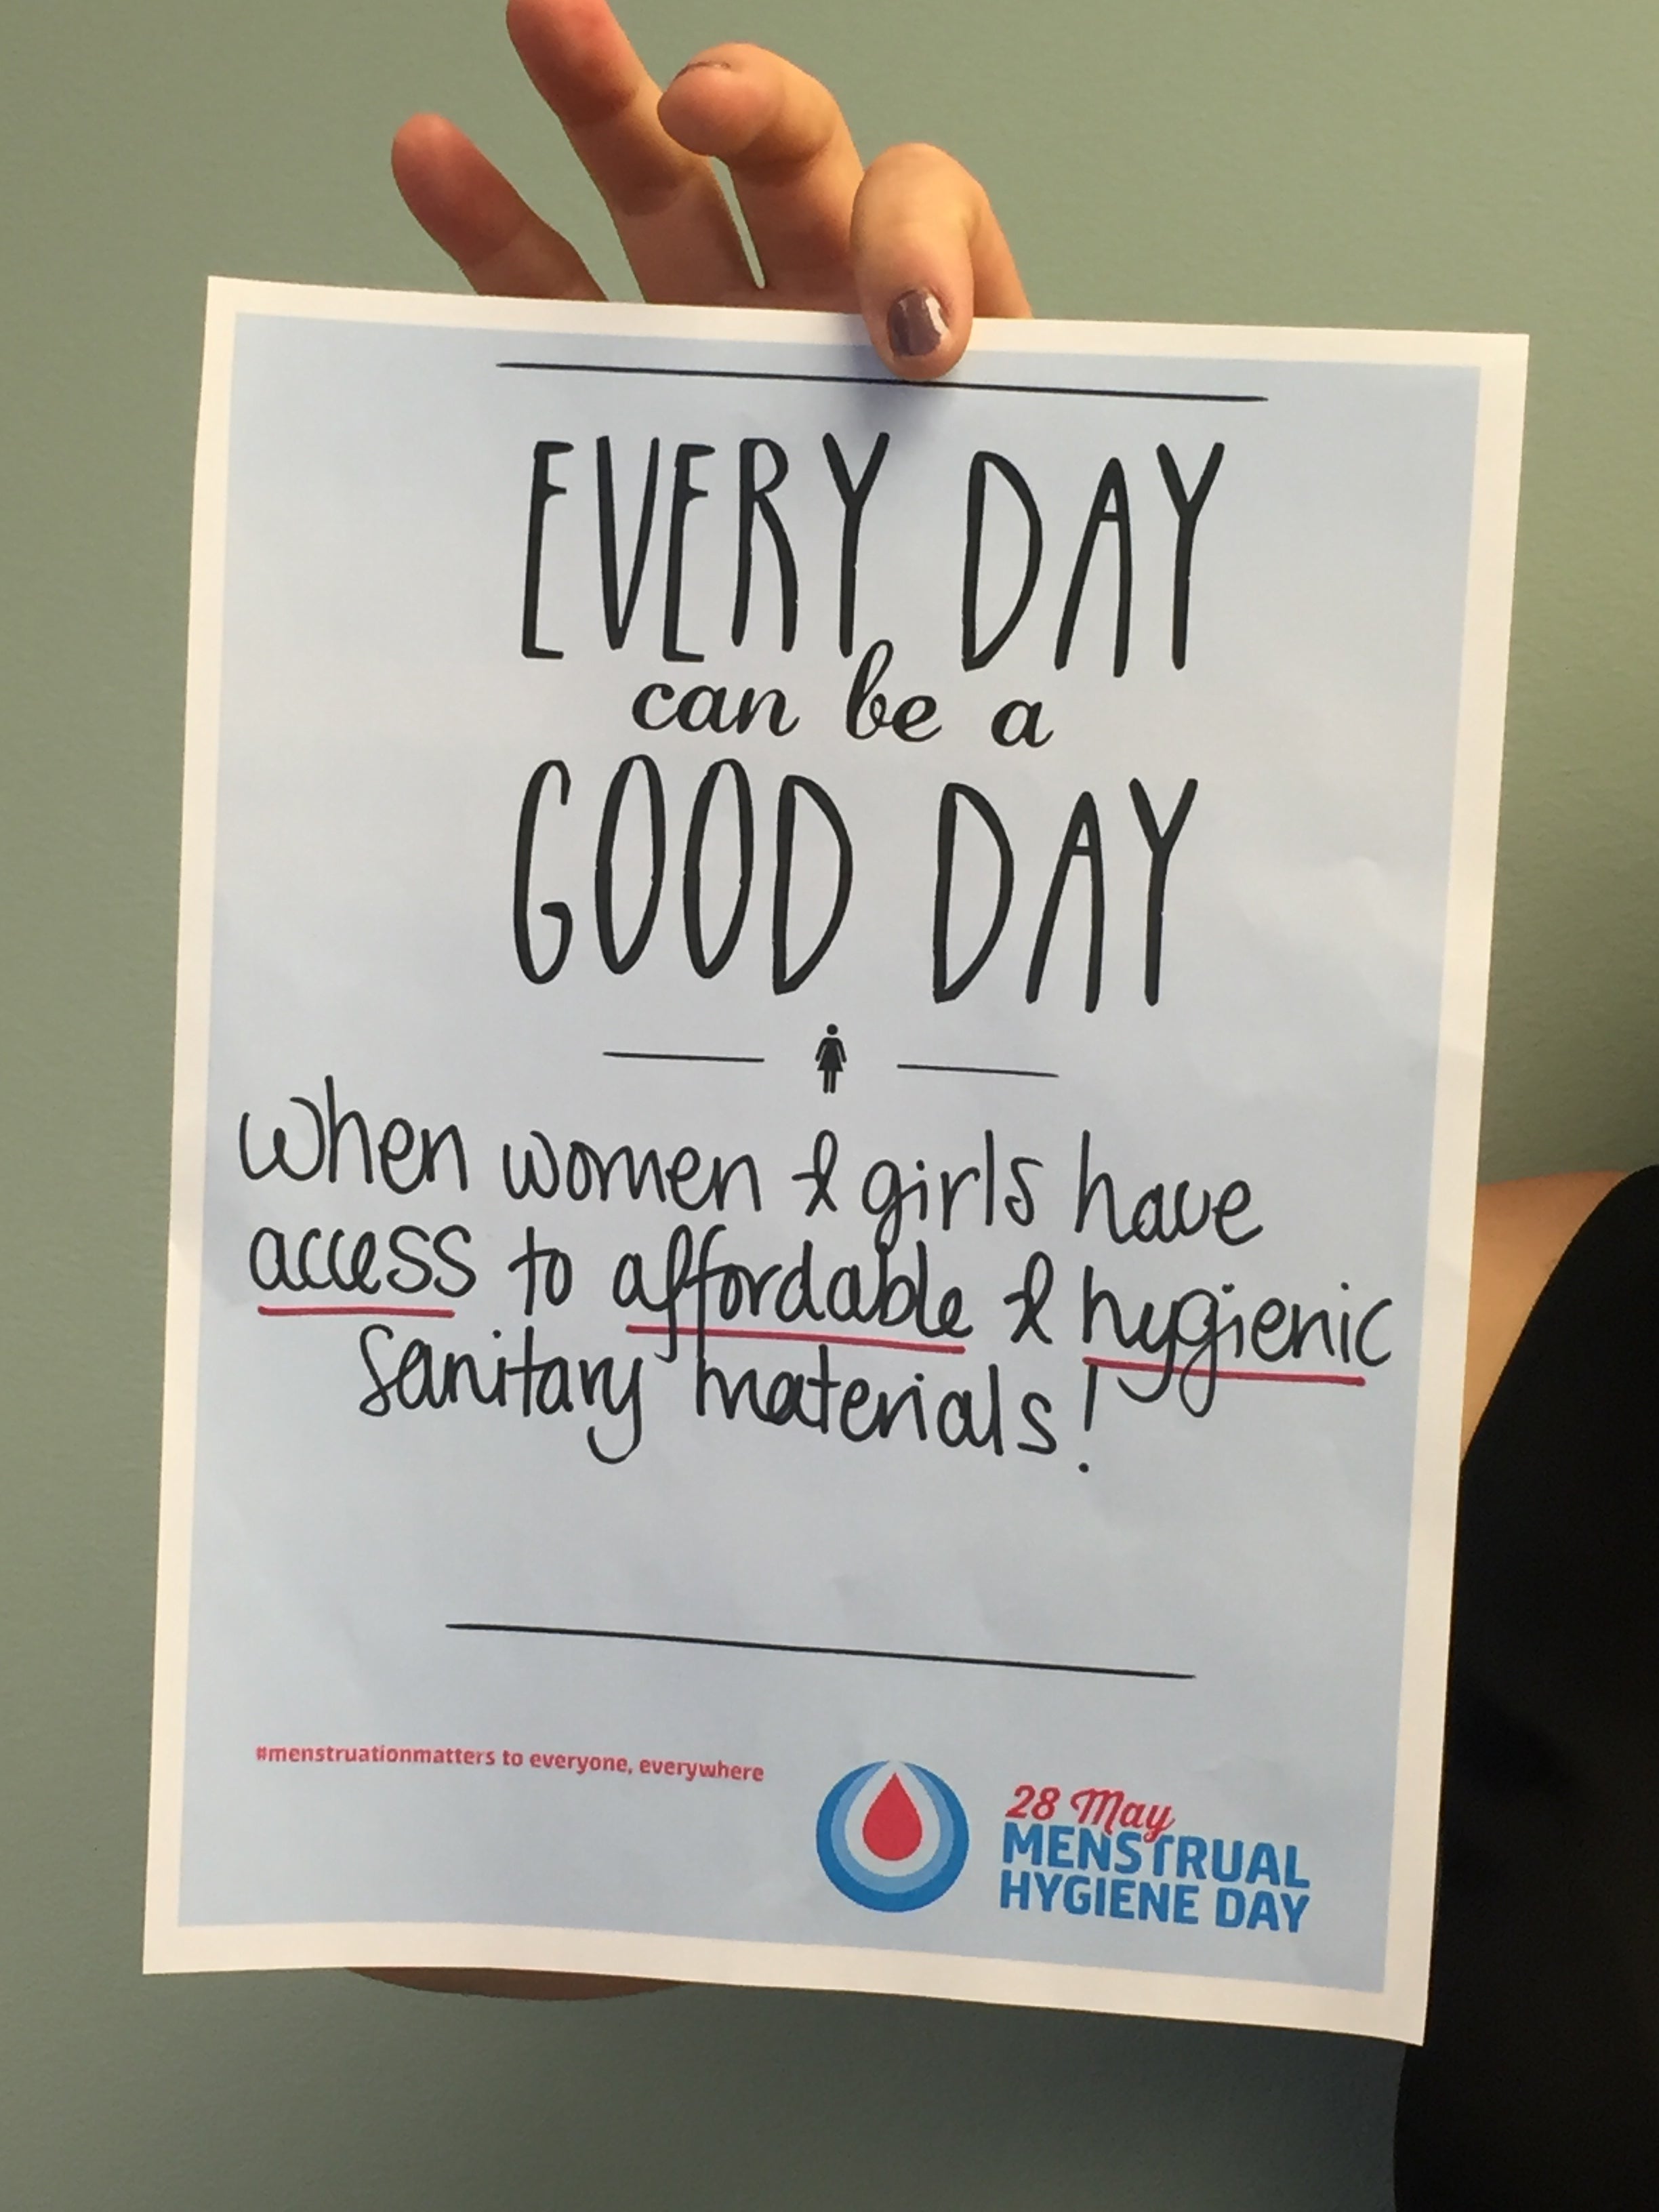 EVERY DAY
can be a
GOOD DAY
When women & girls have
access to affordable & hygienic
sanitary materials!
#menstruationmatters to everyone, everywhere
28 May
MENSTRUAL
HYGIENE DAY